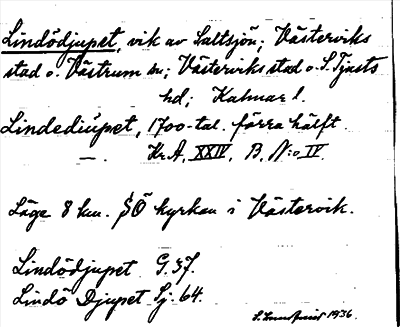 Lindödjupet, vik av Saltsjön; Västerviks
stad o. Västrum sn; Västerviks stad o. S. Tjusts
hd; Kalmar l.
Lindediupet, 1700-tal. förra hälft.
—. Kr. A. XXIV. B. N:o IV.
Läge 8 km. SÖ kyrkan i Västervik.
Lindödjupet G. 37.
Lindö Djupet Sj. 64.
1936